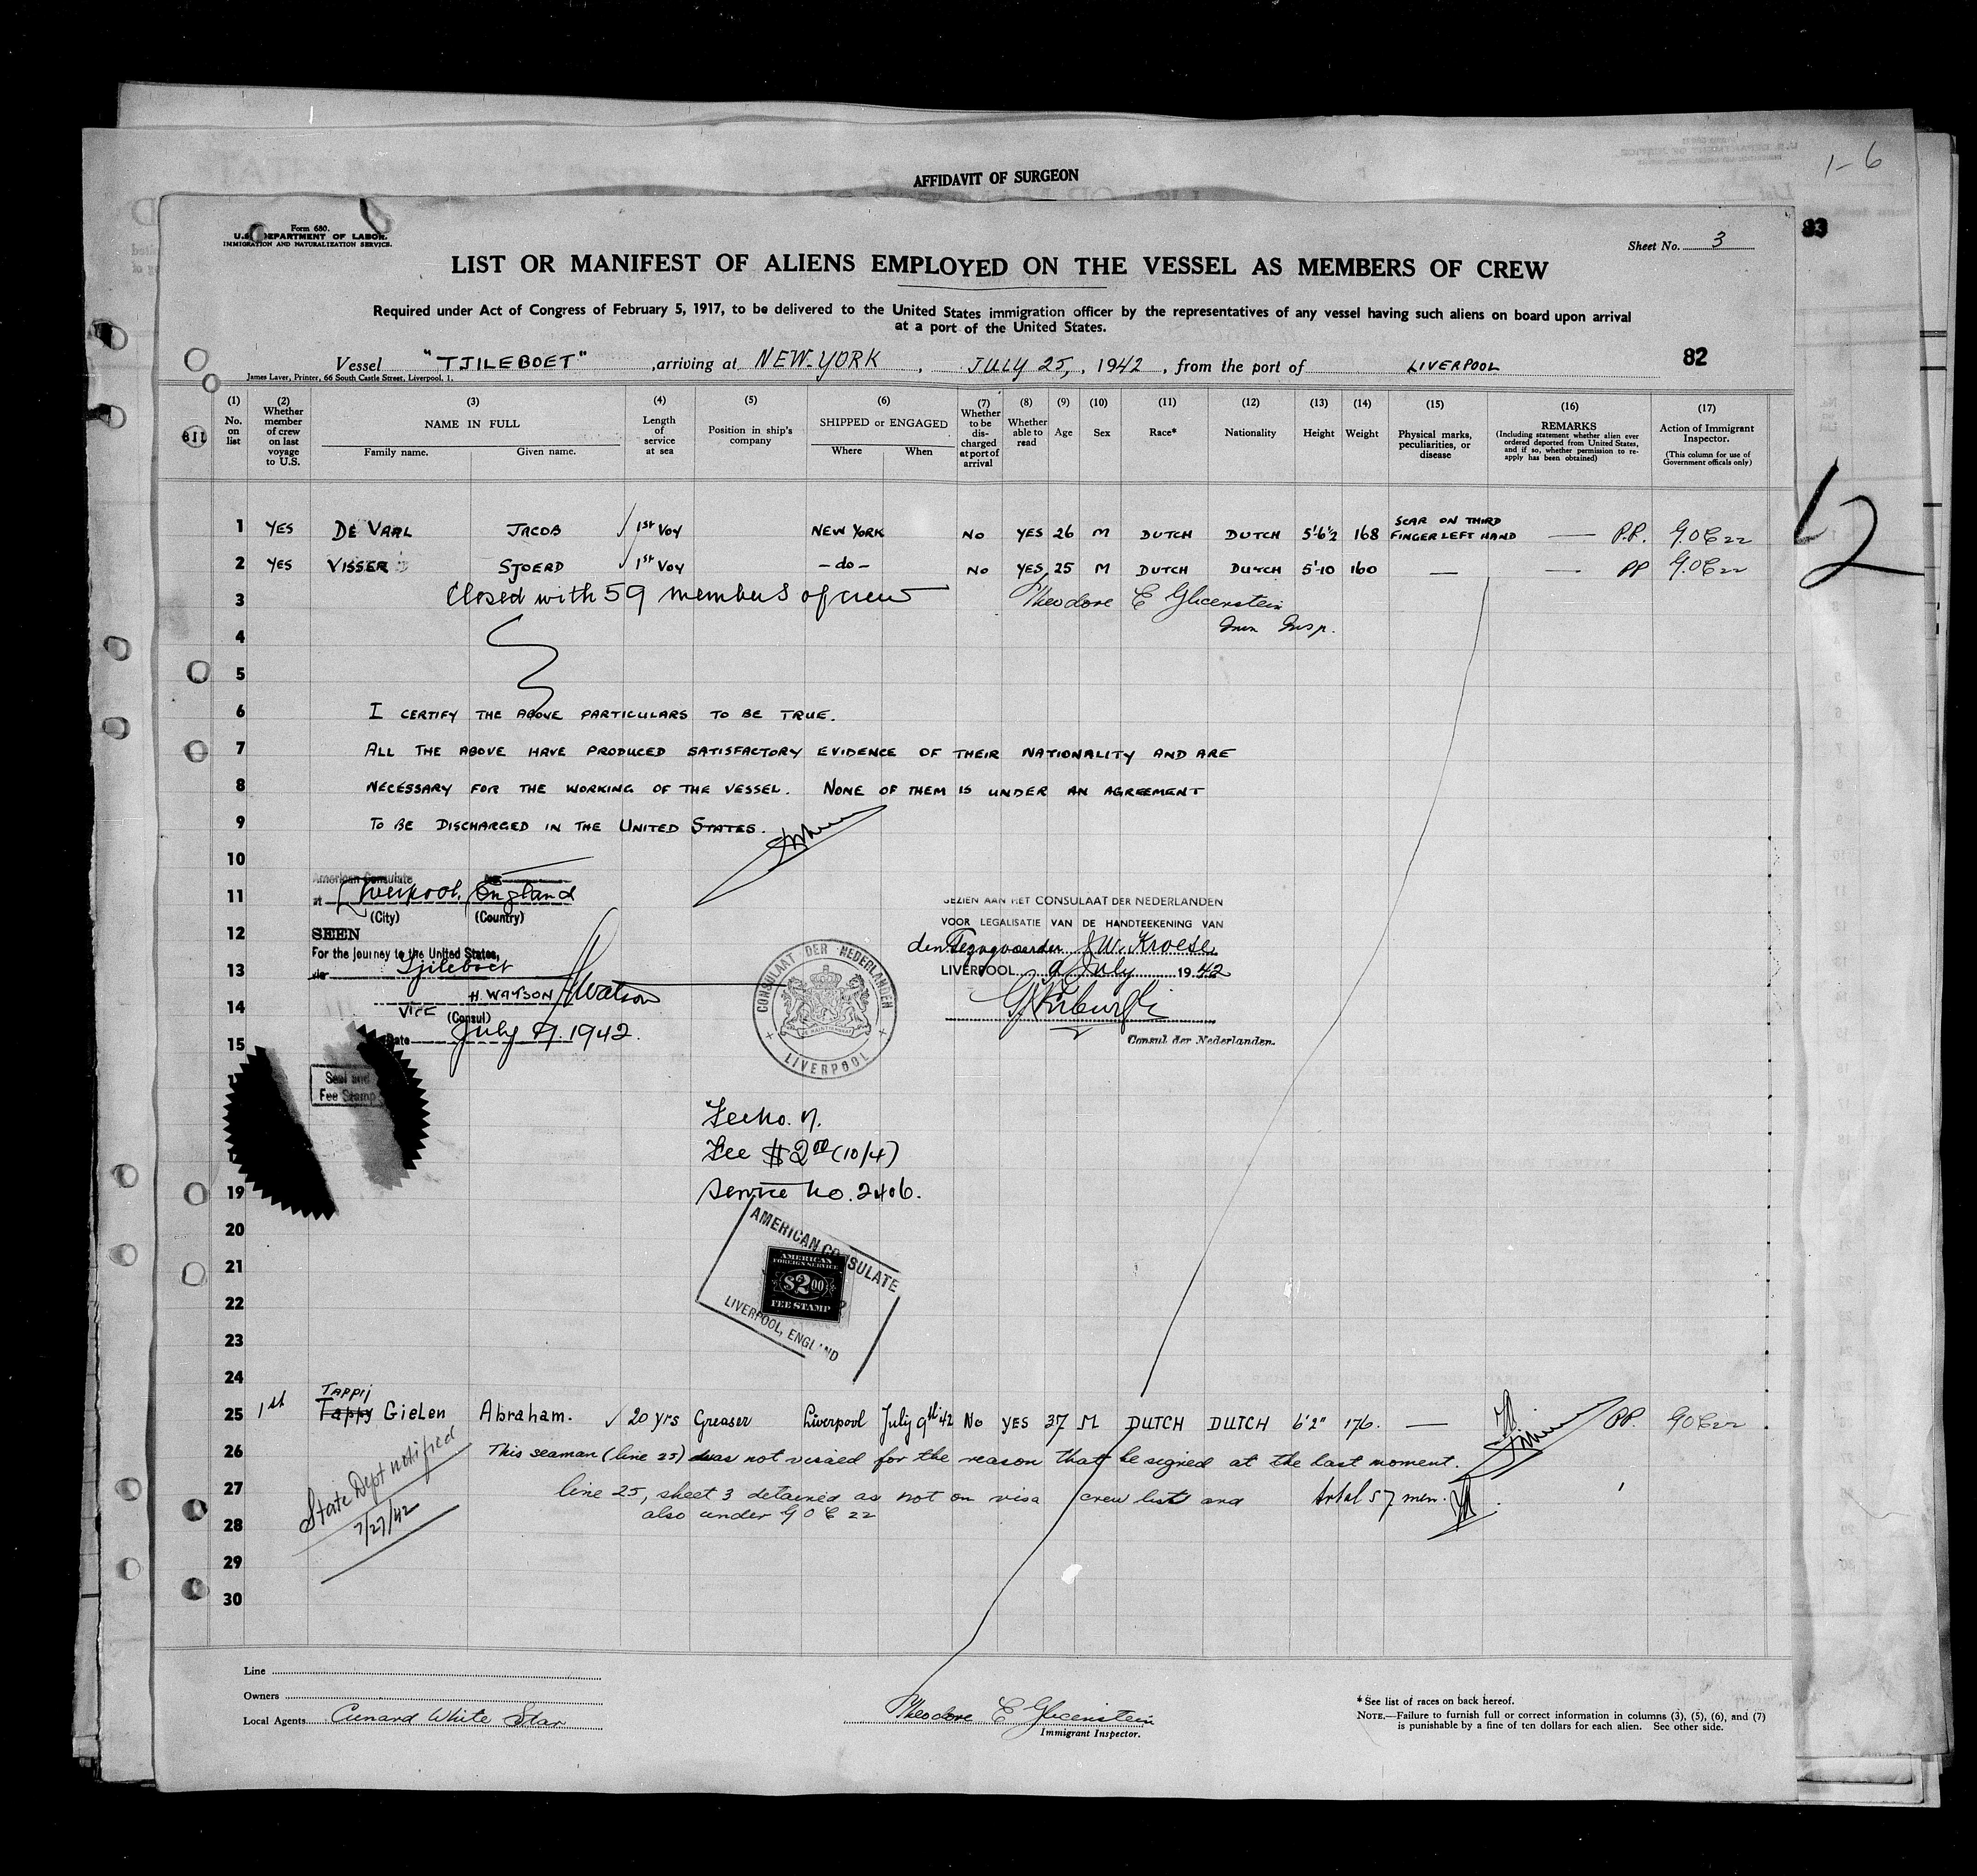 1-6
AFFIDAVIT OF SURGEON
83
Form 680.
U.S. DEPARTMENT OF LABOR.
IMMIGRATION AND NATURALIZATION SERVICE.
Sheet No. 3
LIST OR MANIFEST OF ALIENS EMPLOYED ON THE VESSEL AS MEMBERS OF CREW
Required under Act of Congress of February 5, 1917, to be delivered to the United States immigration officer by the representatives of any vessel having such aliens on board upon arrival
at a port of the United States.
Vessel "TJILEBOET", arriving at NEW-YORK, JULY 25, 1942, from the port of LIVERPOOL
82
James Laver, Printer, 66 South Castle Street, Liverpool, 1.
(1) No. on list
(2) Whether member of crew on last voyage to U.S.
(3) NAME IN FULL Family name. Given name.
(4) Length of service at sea
(5) Position in ship's company
(6) SHIPPED or ENGAGED Where When
(7) Whether to be discharged at port of arrival
(8) Whether able to read
(9) Age
(10) Sex
(11) Race*
(12) Nationality
(13) Height
(14) Weight
(15) Physical marks, peculiarities, or disease
(16) REMARKS (Including statement whether alien ever ordered deported from United States, and if so, whether permission to re-apply has been obtained)
(17) Action of Immigrant Inspector. (This column for use of Government officals only)
12
1 YES DE VAAL JACOB √ 1st VOY NEW YORK NO YES 26 M DUTCH DUTCH 5'6½ 168 SCAR ON THIRD FINGER LEFT HAND — P.P. G.O.C 22
2 YES VISSER SJOERD √ 1st VOY - do - NO YES 25 M DUTCH DUTCH 5'-10 160 — — PP G.O.C 22
3 Closed with 59 members of crew Theodore E Glicenstein
4 Imm Insp.
5
6 I CERTIFY THE ABOVE PARTICULARS TO BE TRUE.
7 ALL THE ABOVE HAVE PRODUCED SATISFACTORY EVIDENCE OF THEIR NATIONALITY AND ARE
8 NECESSARY FOR THE WORKING OF THE VESSEL. NONE OF THEM IS UNDER AN AGREEMENT
9 TO BE DISCHARGED IN THE UNITED STATES.
10
American Consulate
11 at Liverpool, England
(City) (Country)
12 SEEN
For the journey to the United States,
13 via Tjileboet
H. WATSON HWatson
14 VICE (Consul)
Date July 9. 1942.
15
GEZIEN AAN HET CONSULAAT DER NEDERLANDEN
VOOR LEGALISATIE VAN DE HANDTEEKENING VAN
den Gezagvoerder J.W. Kroese
LIVERPOOL 9 July 1942
Consul der Nederlanden.
CONSULAAT DER NEDERLANDEN
LIVERPOOL
Seal and
Fee Stamp
Fee $2.00 (10/4)
19 Service No. 2406.
20
21
22
23
24
AMERICAN CONSULATE
AMERICAN
FOREIGN SERVICE
$2.00
FEE STAMP
LIVERPOOL, ENGLAND
TAPPIJ
25 1st Tappy Gielen Abraham. √ 20 yrs Greaser Liverpool July 9th 42 No YES 37 M DUTCH DUTCH 6'2" 176. — P.P. G O C 22
26 This seaman (line 25) was not visaed for the reason that he signed at the last moment.
27 line 25, sheet 3 detained as not on visa crew list and total 57 men.
28 also under G O C 22
State Dept notified
7/27/42
29
30
Line
Owners
Local Agents Cunard White Star
Theodore E Glicenstein
Immigrant Inspector.
* See list of races on back hereof.
NOTE.—Failure to furnish full or correct information in columns (3), (5), (6), and (7)
is punishable by a fine of ten dollars for each alien. See other side.